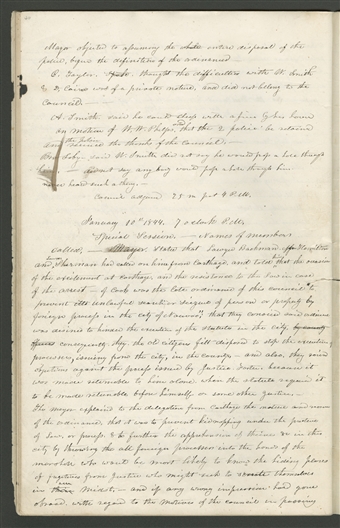 Mayor objected to assuming the whole entire disposal of the
police, beyond the definition of the ordinance
C. Taylor. thought the difficulties with Smith
& D. Cairns was of a private nature, and did not belong to the
Council.—
A. Smith said he could sleep with a fire by his house
on motion of W. W. Phelps, that the 2 police be retained
and receive the thanks of the Council.
Bro. said W. Smith did not say he would pass a hole through
— did not say any king would pass a hole through him
never heard such a thing.—
Council adjourned.
January 10th 1844. 7 o clock P.M.
Special Session.— Names of members
called,— Mayor stated that Lawyer Backman, Hamilton
and Sherman had called on him from Carthage, and told that the occasion
of the excitement at Carthage, and the resistance to the law in case
of the arrest of Cook was the late ordinance of this council to
prevent the unlawful search or seizure of person or property by
foreign process in the city of Nauvoo, that they conceived said ordinance
was designed to hinder the execution of the statutes in the city,
consequently, they, the old citizens felt disposed to stop the execution
processes, issuing from the city, in the county.— and also, they said
objections against the process issued by Justice because it
was made returnable to him alone when the statute required it
to be made returnable before himself or some other Justice.—
The mayor explained to the delegation from Carthage the nature and reason
of the ordinance, that it was to prevent kidnapping under the pretense
of law, or process, & to further the apprehension of thieves &c in this
city by throwing the all foreign processes into the hands of the
marshal who would be most likely to know the hiding places
of fugitives from justice who might seek to secrete themselves
in our midst.— and if any wrong impression had gone
abroad, with regard to the motives of the council in passing